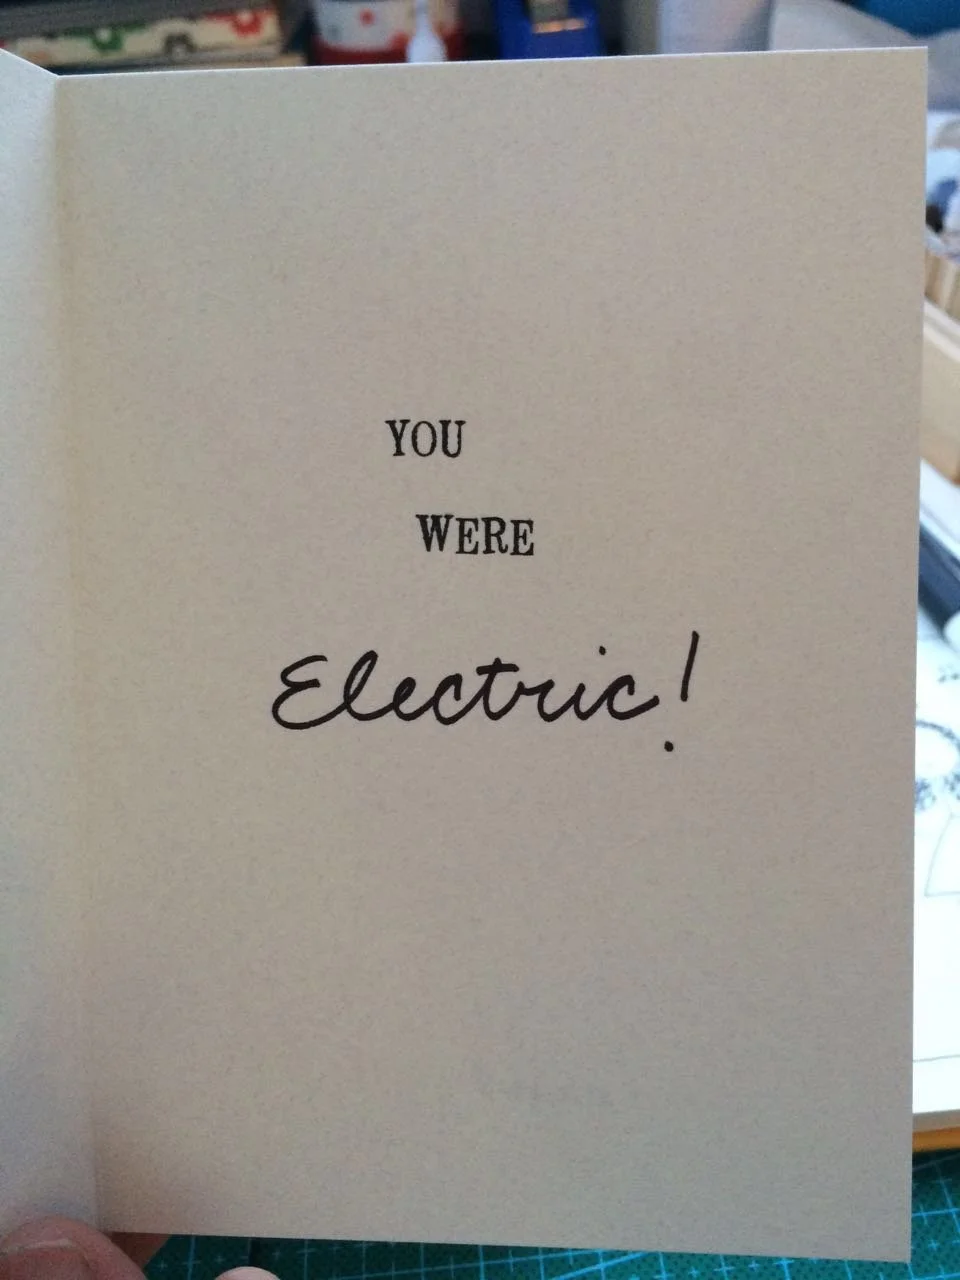 YOU
WERE
Electric!